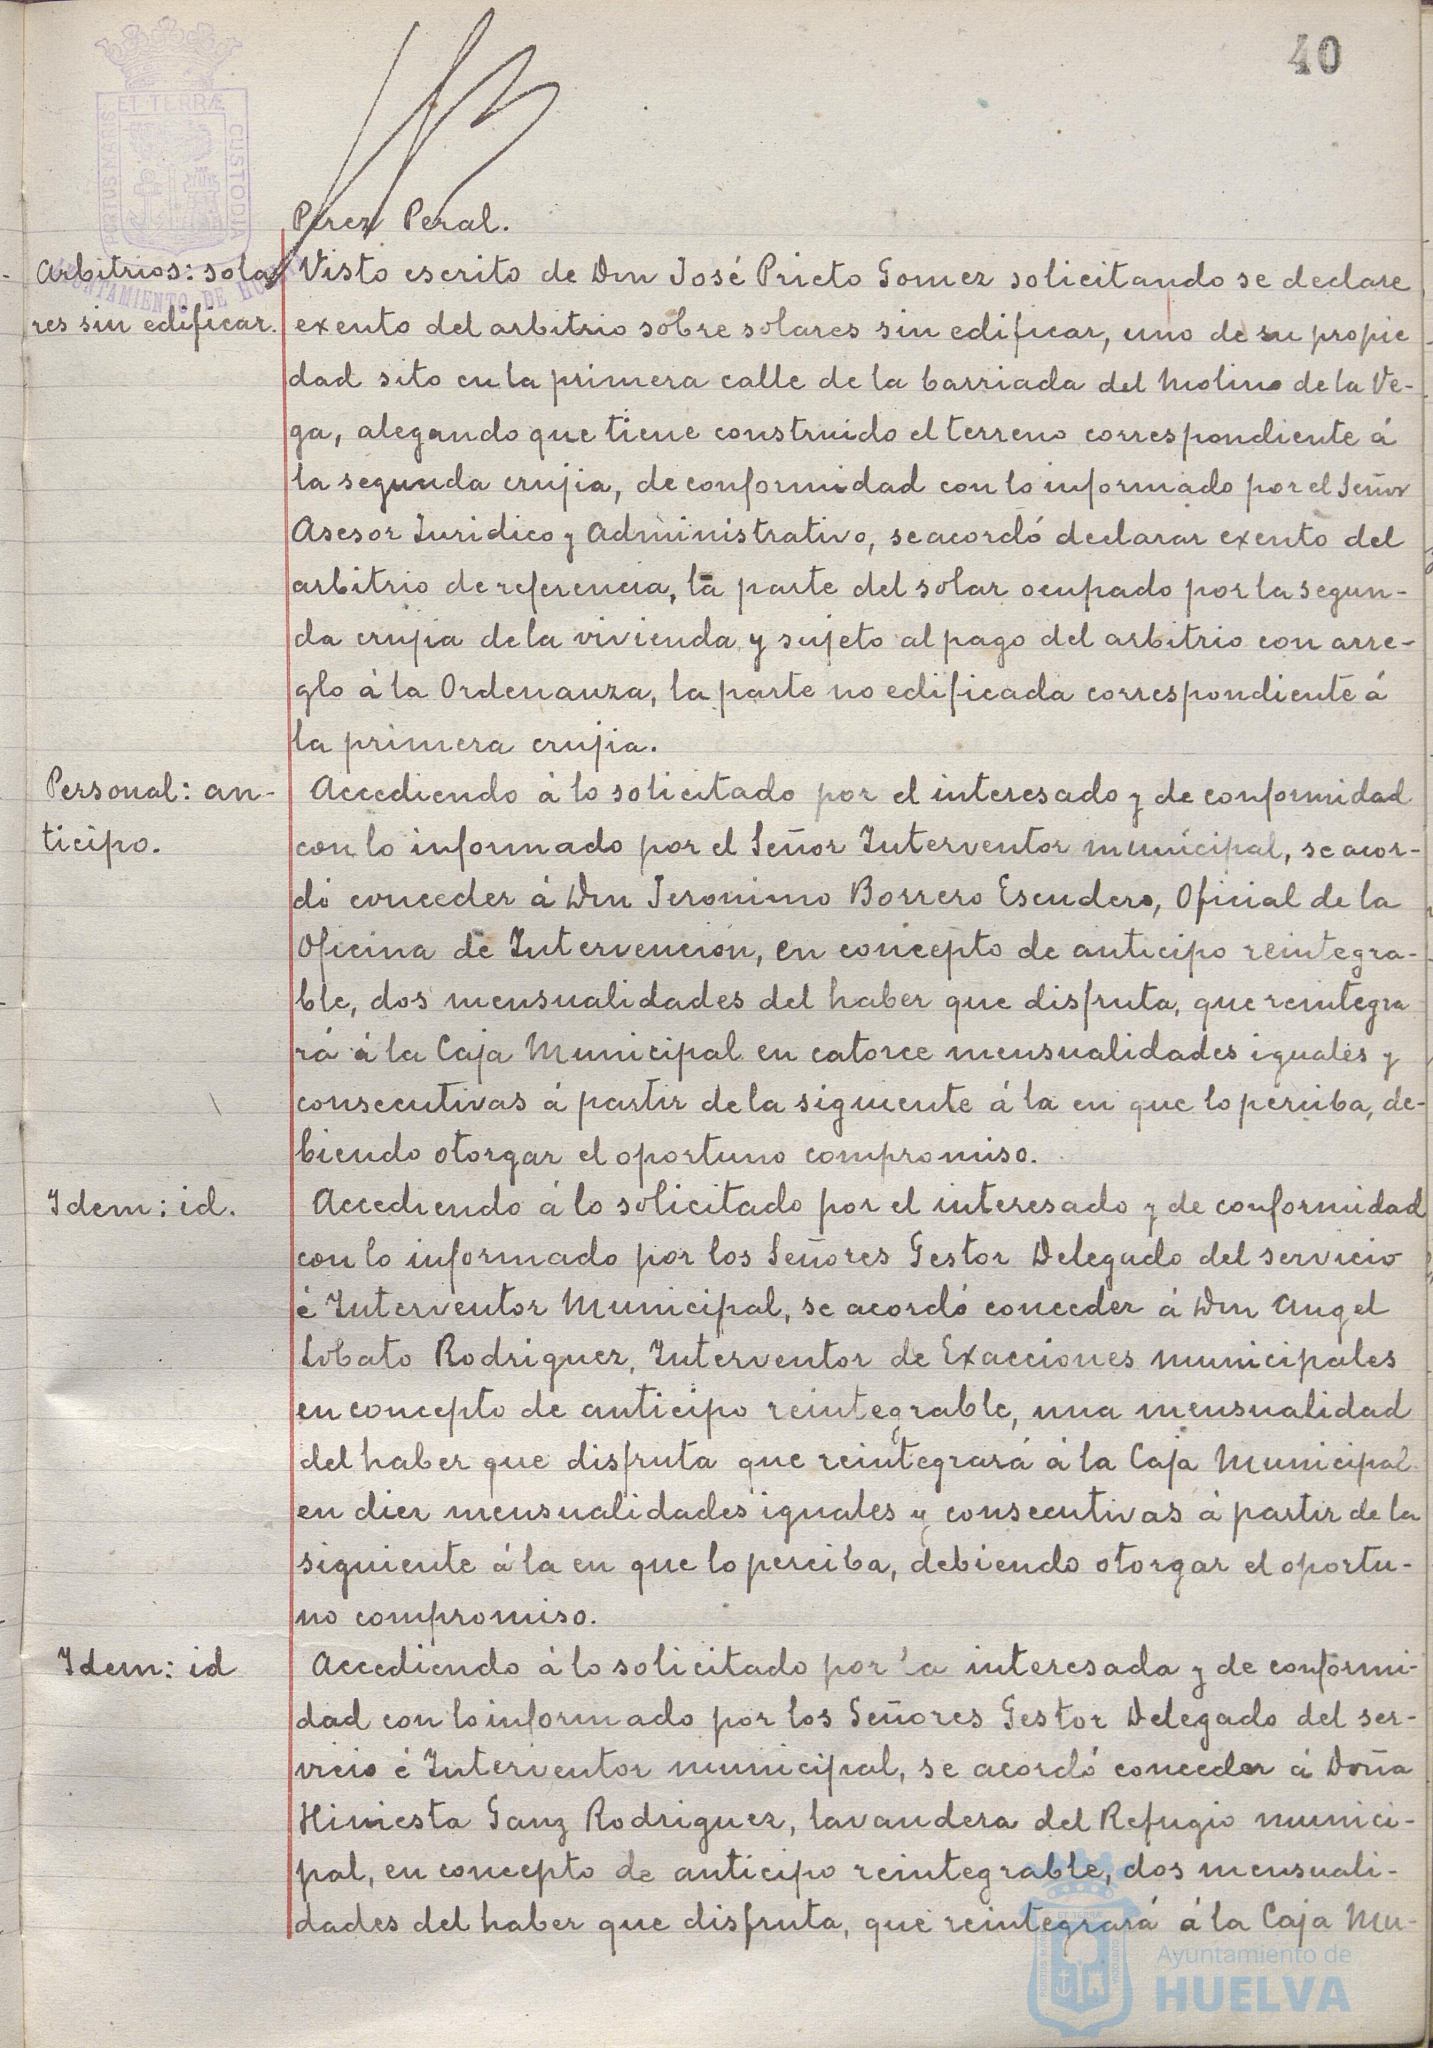 40
ET TERRÆ
CUSTODIA
PORTUS MARIS
AYUNTAMIENTO DE
Perez Peral.
Arbitrios: sola
res sin edificar.
Visto escrito de Don José Prieto Gomez solicitando se declare
exento del arbitrio sobre solares sin edificar, uno de su propie
dad sito en la primera calle de la barriada del Molino de la Ve-
ga, alegando que tiene construido el terreno correspondiente á
la segunda crujia, de conformidad con lo informado por el Señor
Asesor Juridico y Administrativo, se acordó declarar exento del
arbitrio de referencia, la parte del solar ocupado por la segun-
da crujia de la vivienda y sujeto al pago del arbitrio con arre-
glo á la Ordenanza, la parte no edificada correspondiente á
la primera crujia.
Personal: an-
ticipo.
Accediendo á lo solicitado por el interesado y de conformidad
con lo informado por el Señor Interventor municipal, se acor-
dó conceder á Don Jeronimo Borrero Escudero, Oficial de la
Oficina de Intervención, en concepto de anticipo reintegra-
ble, dos mensualidades del haber que disfruta, que reintegra
rá á la Caja Municipal en catorce mensualidades iguales y
consecutivas á partir de la siguiente á la en que lo perciba, de-
biendo otorgar el oportuno compromiso.
Idem: id.
Accediendo á lo solicitado por el interesado y de conformidad
con lo informado por los Señores Gestor Delegado del servicio
é Interventor Municipal, se acordó conceder á Don Angel
Lobato Rodriguez, Interventor de Exacciones municipales
en concepto de anticipo reintegrable, una mensualidad
del haber que disfruta que reintegrará á la Caja Municipal
en diez mensualidades iguales y consecutivas á partir de la
siguiente á la en que lo perciba, debiendo otorgar el oportu-
no compromiso.
Idem: id
Accediendo á lo solicitado por la interesada y de conformi-
dad con lo informado por los Señores Gestor Delegado del ser-
vicio é Interventor municipal, se acordó conceder á Doña
Hiniesta Ganz Rodriguez, lavandera del Refugio munici-
pal, en concepto de anticipo reintegrable, dos mensuali-
dades del haber que disfruta, que reintegrará á la Caja Mu-
Ayuntamiento de
HUELVA